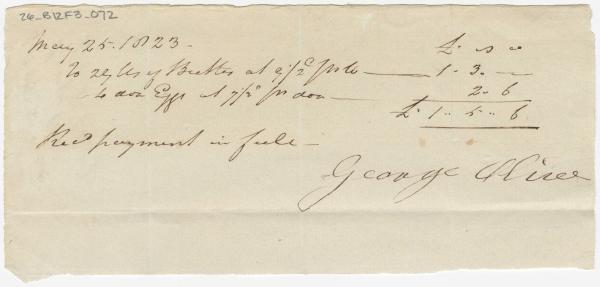 26_B12F3_072
May 25. 1823.
£. s d
To 29 lbs of Butter at 9½d pr lb — 1 . 3 . —
4 doz Eggs at 7½d pr doz — 2 . 6
£. 1 . 5 . 6
Recd payment in full —
George